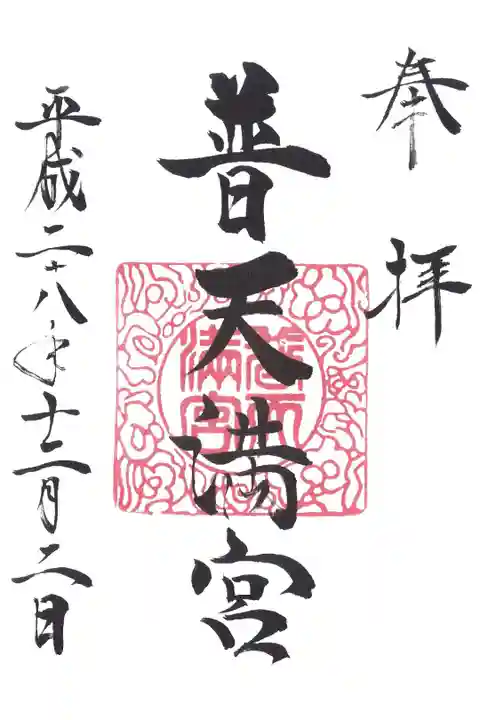 奉拝
普天満宮
普天満宮
平成二十八年十二月二日